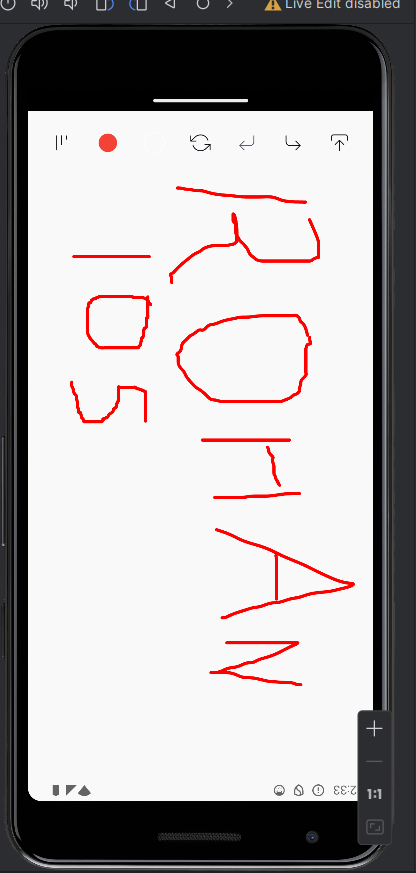 Live Edit disabled
ROHAN
105
2:33
1:1